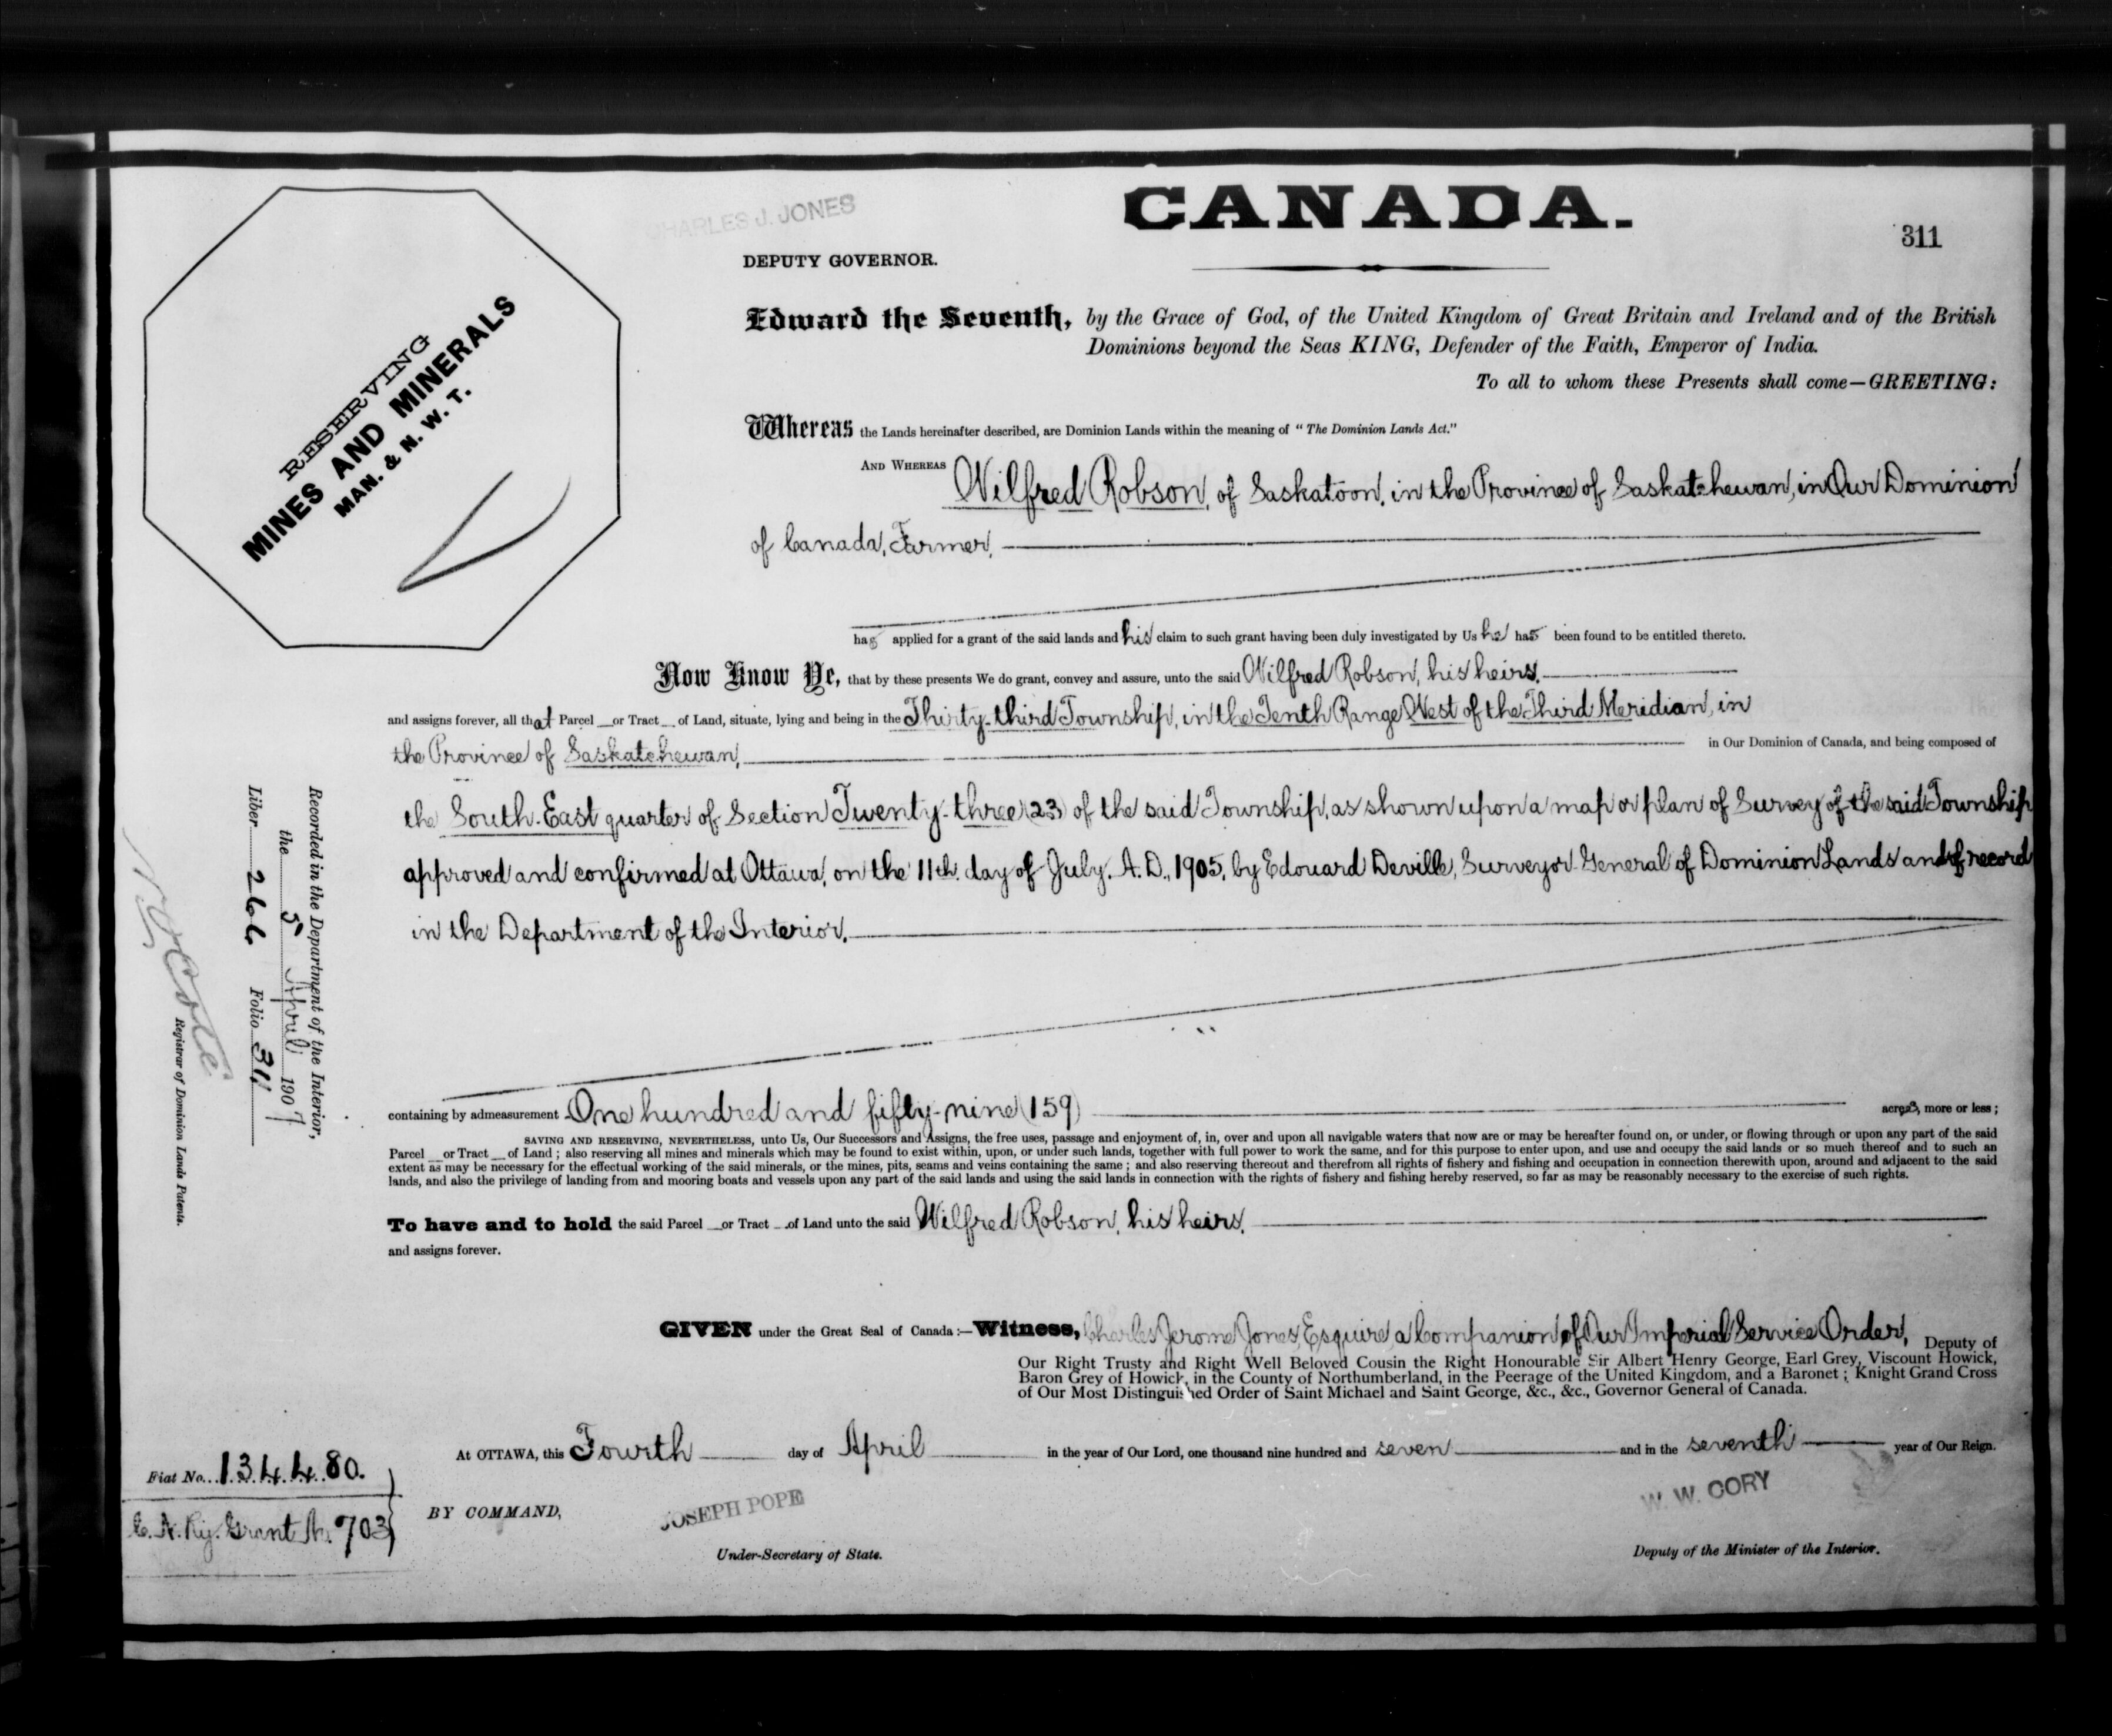 CHARLES J. JONES
CANADA.
311
DEPUTY GOVERNOR.
RESERVING
MINES AND MINERALS
MAN. & N. W. T.
Edward the Seventh, by the Grace of God, of the United Kingdom of Great Britain and Ireland and of the British
Dominions beyond the Seas KING, Defender of the Faith, Emperor of India.
To all to whom these Presents shall come—GREETING:
Whereas the Lands hereinafter described, are Dominion Lands within the meaning of "The Dominion Lands Act."
AND WHEREAS Wilfred Robson, of Saskatoon, in the Province of Saskatchewan, in Our Dominion
of Canada, Farmer,
has applied for a grant of the said lands and his claim to such grant having been duly investigated by Us he has been found to be entitled thereto.
Now Know Ye, that by these presents We do grant, convey and assure, unto the said Wilfred Robson, his heirs,
and assigns forever, all that Parcel or Tract of Land, situate, lying and being in the Thirty-third Township, in the Tenth Range West of the Third Meridian, in
the Province of Saskatchewan, in Our Dominion of Canada, and being composed of
the South-East quarter of Section Twenty-three (23) of the said Township, as shown upon a map or plan of Survey of the said Township
approved and confirmed at Ottawa, on the 11th. day of July, A.D., 1905, by Edouard Deville, Surveyor General of Dominion Lands and of record
in the Department of the Interior,
containing by admeasurement One hundred and fifty-nine (159) acres, more or less;
SAVING AND RESERVING, NEVERTHELESS, unto Us, Our Successors and Assigns, the free uses, passage and enjoyment of, in, over and upon all navigable waters that now are or may be hereafter found on, or under, or flowing through or upon any part of the said
Parcel or Tract of Land; also reserving all mines and minerals which may be found to exist within, upon, or under such lands, together with full power to work the same, and for this purpose to enter upon, and use and occupy the said lands or so much thereof and to such an
extent as may be necessary for the effectual working of the said minerals, or the mines, pits, seams and veins containing the same; and also reserving thereout and therefrom all rights of fishery and fishing and occupation in connection therewith upon, around and adjacent to the said
lands, and also the privilege of landing from and mooring boats and vessels upon any part of the said lands and using the said lands in connection with the rights of fishery and fishing hereby reserved, so far as may be reasonably necessary to the exercise of such rights.
To have and to hold the said Parcel or Tract of Land unto the said Wilfred Robson, his heirs,
and assigns forever.
Recorded in the Department of the Interior,
the 5 April 1907
Liber 266 Folio 311
Registrar of Dominion Lands Patents.
GIVEN under the Great Seal of Canada:—Witness, Charles Jerome Jones, Esquire, a Companion of Our Imperial Service Order, Deputy of
Our Right Trusty and Right Well Beloved Cousin the Right Honourable Sir Albert Henry George, Earl Grey, Viscount Howick,
Baron Grey of Howick, in the County of Northumberland, in the Peerage of the United Kingdom, and a Baronet; Knight Grand Cross
of Our Most Distinguished Order of Saint Michael and Saint George, &c., &c., Governor General of Canada.
At OTTAWA, this Fourth day of April in the year of Our Lord, one thousand nine hundred and seven and in the seventh year of Our Reign.
Fiat No. 134480.
Grant No. 703
BY COMMAND,
JOSEPH POPE
W. W. CORY
Under-Secretary of State.
Deputy of the Minister of the Interior.